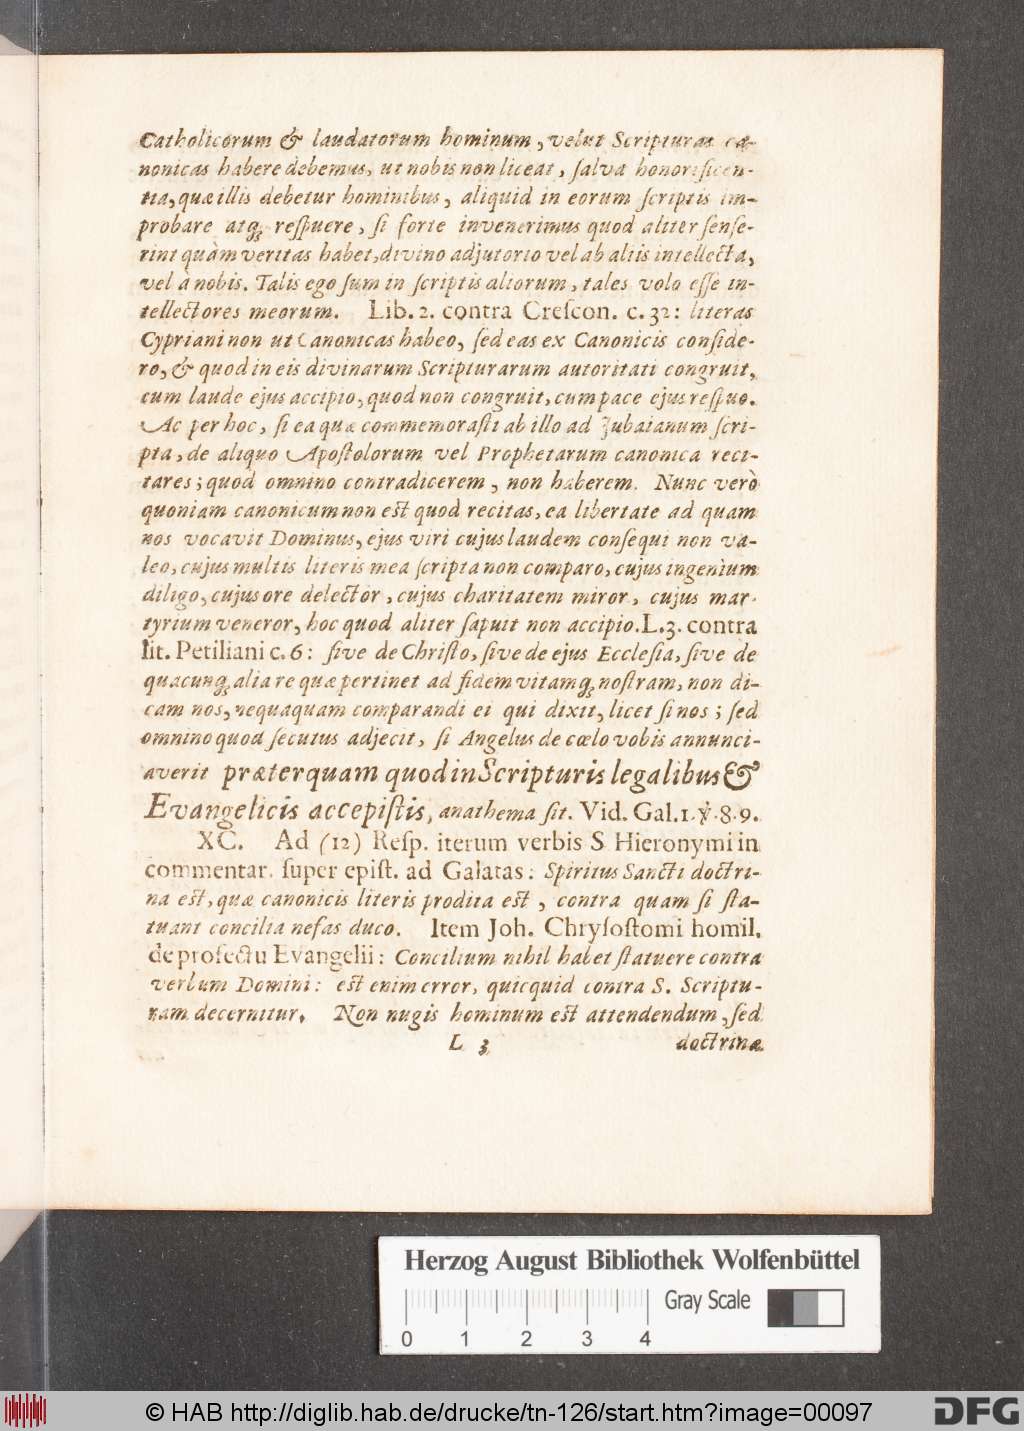 Catholicorum & laudatorum hominum, velut Scripturas ca-
nonicas habere debemus, ut nobis non liceat, ſalva honorificen-
tia, quæ illis debetur hominibus, aliquid in eorum ſcriptis im-
probare atq; reſpuere, ſi forte invenerimus quod aliter ſenſe-
rint quàm veritas habet, divino adjutorio vel ab aliis intellecta,
vel à nobis. Talis ego ſum in ſcriptis aliorum, tales volo eſſe in-
tellectores meorum. Lib. 2. contra Creſcon. c. 32: literas
Cypriani non ut Canonicas habeo, ſed eas ex Canonicis conſide-
ro, & quod in eis divinarum Scripturarum autoritati congruit,
cum laude ejus accipio, quod non congruit, cum pace ejus reſpuo.
Ac per hoc, ſi ea quæ commemoraſti ab illo ad Jubaianum ſcri-
pta, de aliquo Apoſtolorum vel Prophetarum canonica reci-
tares; quod omnino contradicerem, non haberem. Nunc verò
quoniam canonicum non eſt quod recitas, ea libertate ad quam
nos vocavit Dominus, ejus viri cujus laudem conſequi non va-
leo, cujus multis literis mea ſcripta non comparo, cujus ingenium
diligo, cujus ore delector, cujus charitatem miror, cujus mar-
tyrium veneror, hoc quod aliter ſapuit non accipio. L. 3. contra
lit. Petiliani c. 6: ſive de Chriſto, ſive de ejus Eccleſia, ſive de
quacunq; alia re quæ pertinet ad fidem vitamq; noſtram, non di-
cam nos, nequaquam comparandi ei qui dixit, licet ſi nos; ſed
omnino quod ſecutus adjecit, ſi Angelus de cœlo vobis annunci-
averit præterquam quod in Scripturis legalibus &
Evangelicis accepiſtis, anathema ſit. Vid. Gal. 1. ℣. 8. 9.
XC. Ad (12) Reſp. iterum verbis S Hieronymi in
commentar. ſuper epiſt. ad Galatas: Spiritus Sancti doctri-
na eſt, quæ canonicis literis prodita eſt, contra quam ſi ſta-
tuant concilia nefas duco. Item Joh. Chryſoſtomi homil.
de profectu Evangelii: Concilium nihil habet ſtatuere contra
verbum Domini: eſt enim error, quicquid contra S. Scriptu-
ram decernitur. Non nugis hominum eſt attendendum, ſed
L 3 doctrinæ
Herzog August Bibliothek Wolfenbüttel
Gray Scale
0 1 2 3 4
© HAB http://diglib.hab.de/drucke/tn-126/start.htm?image=00097
DFG